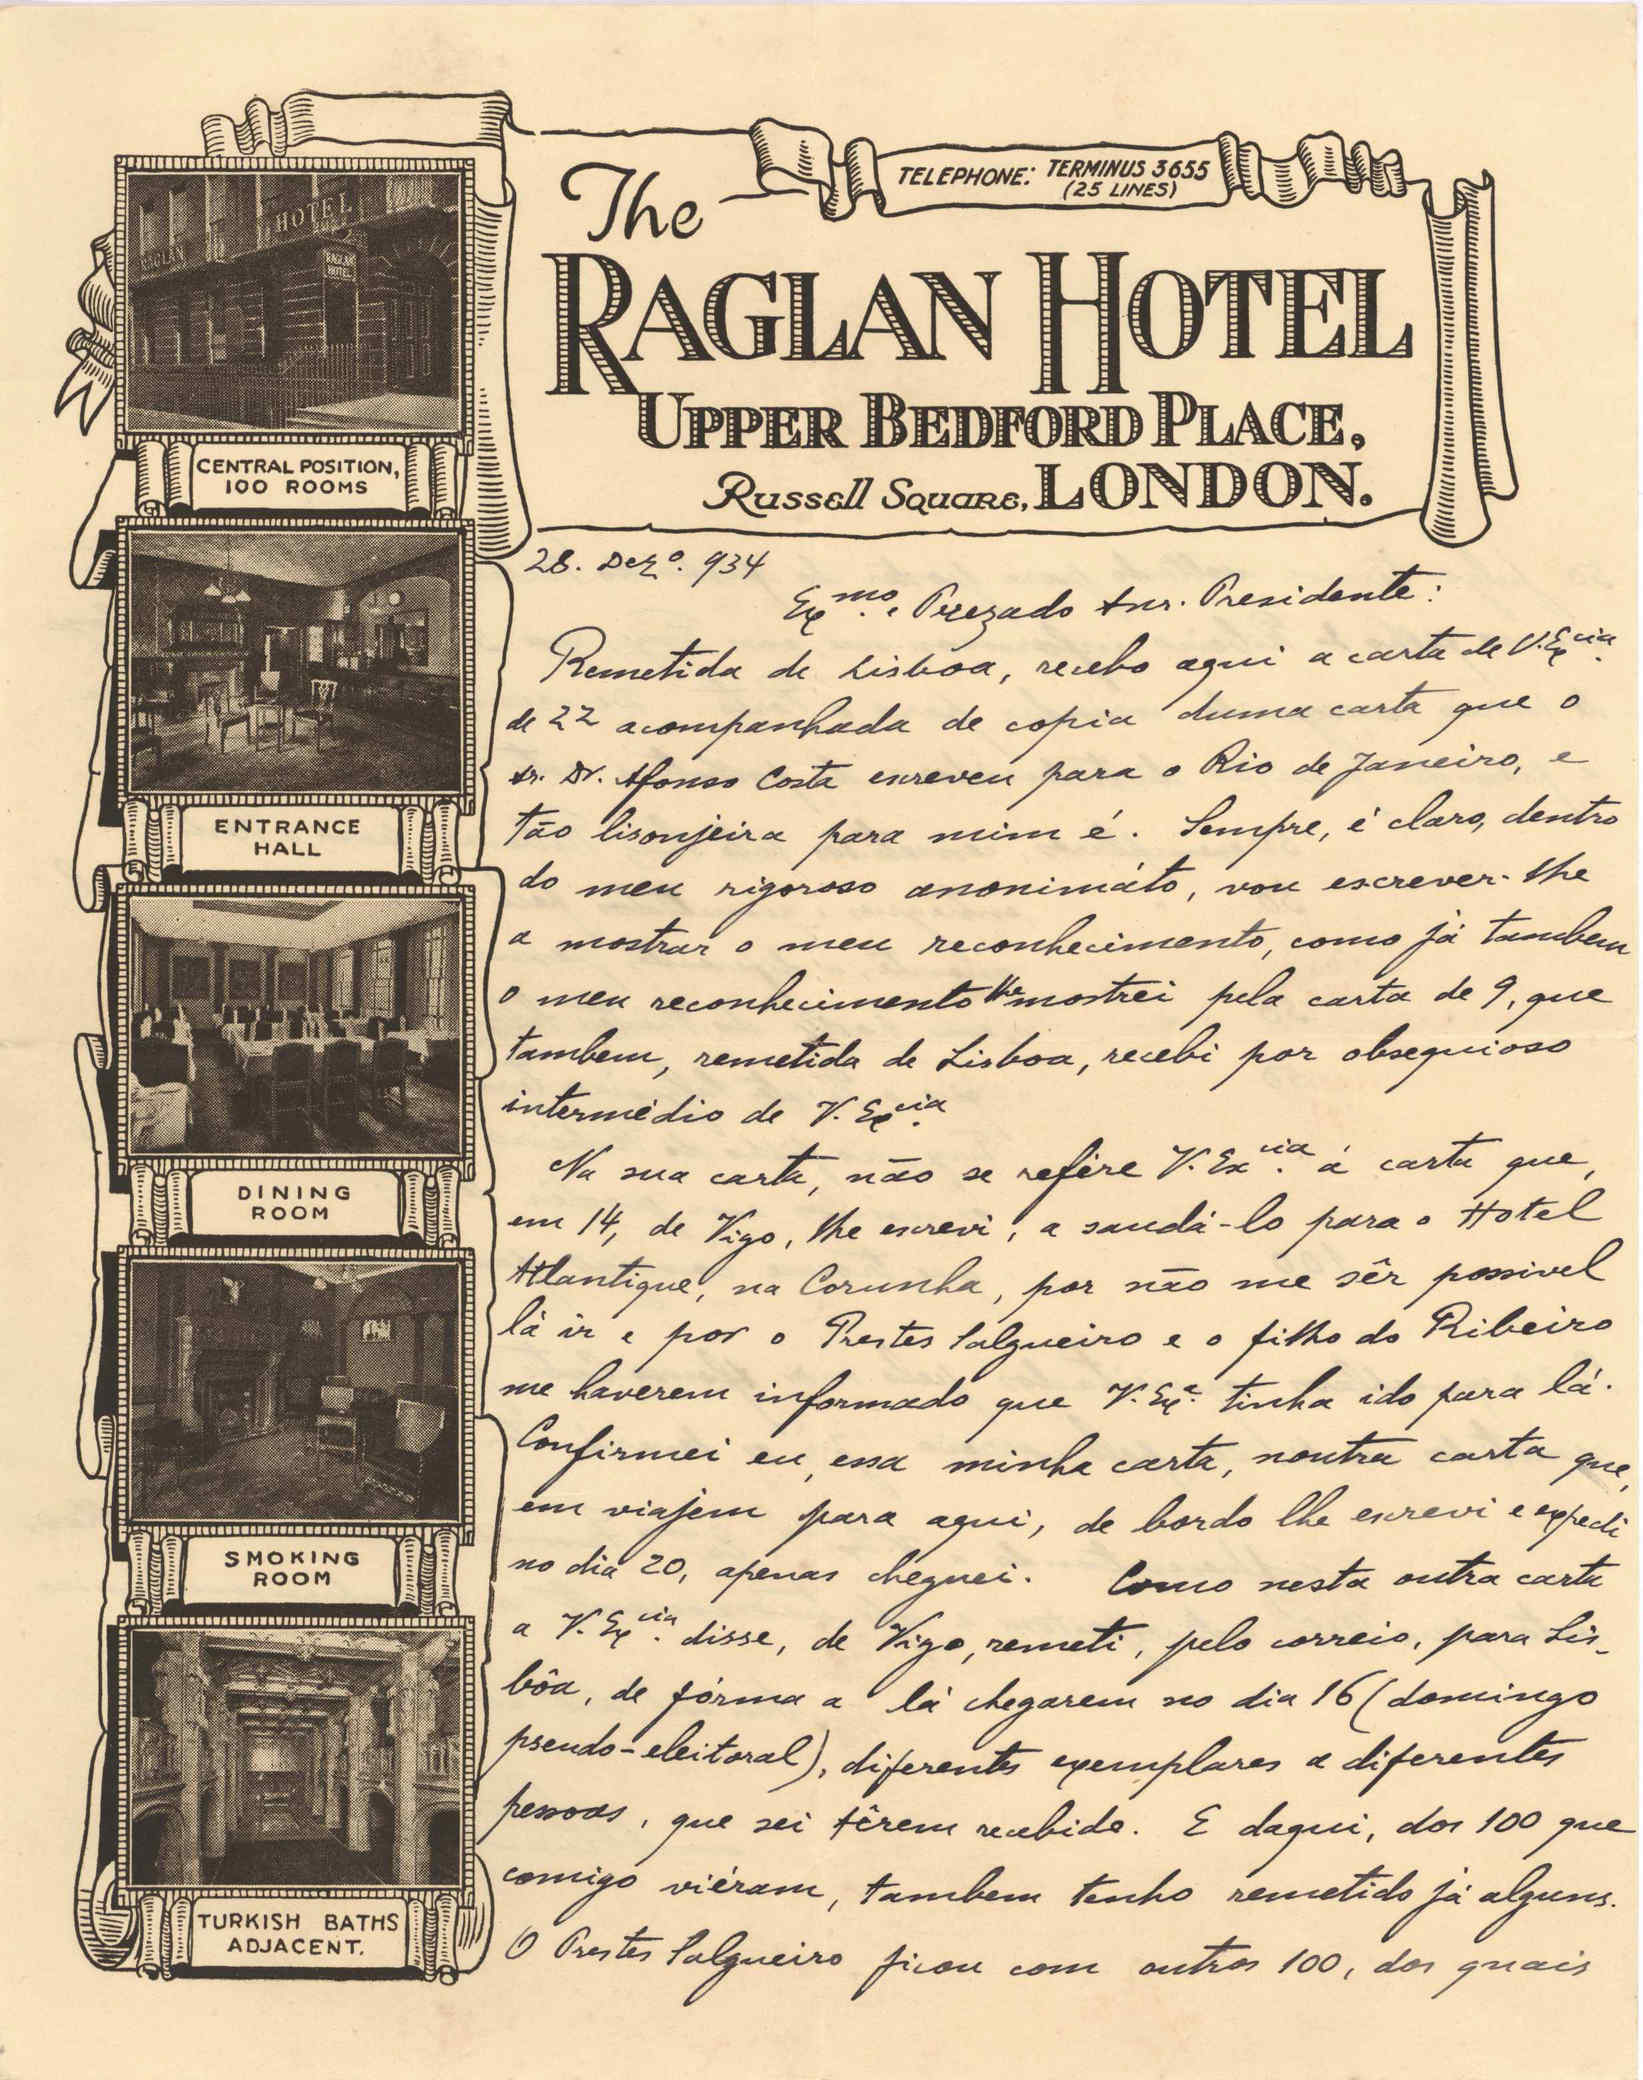 TELEPHONE: TERMINUS 3655
(25 LINES)
The
RAGLAN HOTEL
UPPER BEDFORD PLACE,
RUSSELL SQUARE, LONDON.
HOTEL
RAGLAN
RAGLAN
HOTEL
CENTRAL POSITION,
100 ROOMS
ENTRANCE
HALL
DINING
ROOM
SMOKING
ROOM
TURKISH BATHS
ADJACENT.
28. Dezº. 934
Exmo. e Prezado Snr. Presidente:
Remetida de Lisboa, recebo aqui a carta de V. Excia.
de 22 acompanhada de copia duma carta que o
Sr. Dr. Afonso Costa escreveu para o Rio de Janeiro, e
tão lisonjeira para mim é. Sempre, é claro, dentro
do meu rigoroso anonimáto, vou escrever-lhe
a mostrar o meu reconhecimento, como já tambem
o meu reconhecimento lhe mostrei pela carta de 9, que
tambem, remetida de Lisboa, recebi por obsequioso
intermédio de V. Excia.
Na sua carta, não se refére V. Excia. á carta que,
em 14, de Vigo, lhe escrevi, a saudá-lo para o Hotel
Atlantique, na Corunha, por não me sêr possivel
lá ir e por o Prestes Salgueiro e o filho do Ribeiro
me haverem informado que V. Exa. tinha ido para lá.
Confirmei eu, essa minha carta, noutra carta que,
em viajem para aqui, de bordo lhe escrevi e expedi
no dia 20, apenas cheguei. Como nesta outra carta
a V. Excia. disse, de Vigo, remeti, pelo correio, para Lis-
bôa, de fórma a lá chegarem no dia 16 (domingo
pseudo-eleitoral), diferentes exemplares a diferentes
pessoas, que sei têrem recebido. E daqui, dos 100 que
comigo viéram, tambem tenho remetido já alguns.
O Prestes Salgueiro ficou com outros 100, dos quais